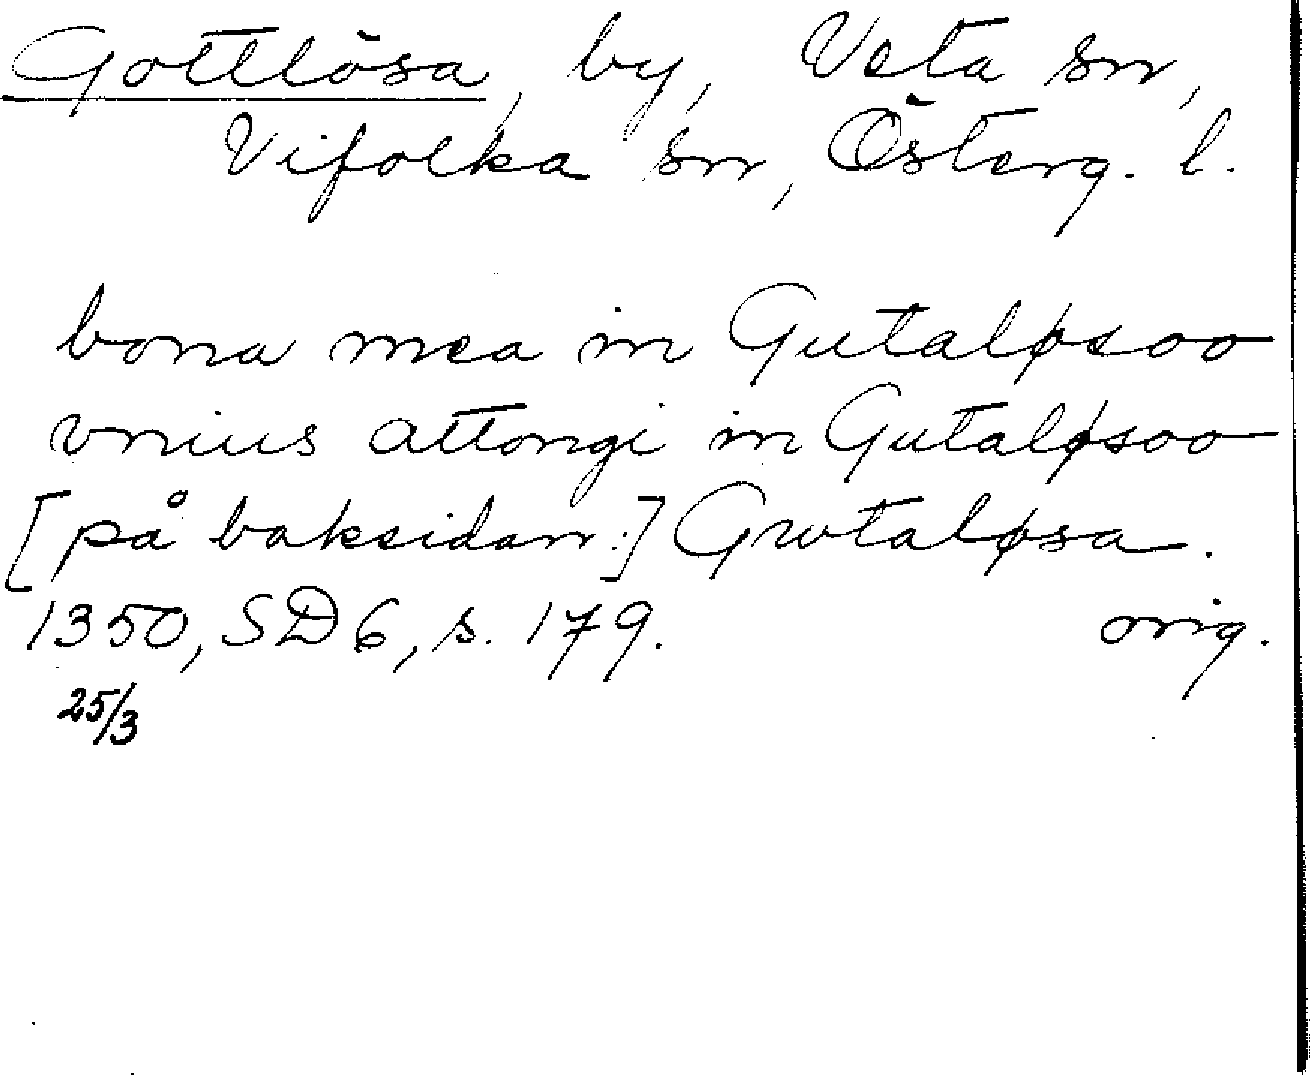 Gottlösa, by, Veta sn,
Vifolka sn, Österg. l.
bona mea in Gutaløsoo
vnius attongi in Gutaløsoo
[på baksidan:] Gwtaløsa.
1350, SD 6, s. 179. orig.
25/3